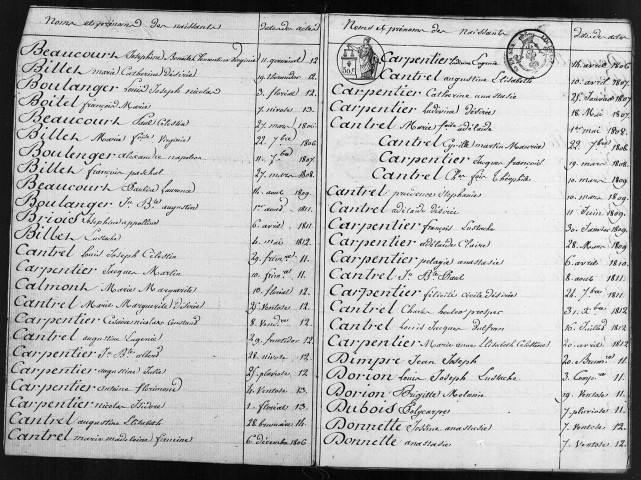 Noms et prénoms des naissants Date des actes
Beaucourt Josephine 11. germinal 12
Billet marie Catherine désirée 19. thermidor 12
Boulanger Louis Joseph nicolas 3. floréal 12
Boitel françois Marie 7. nivose 13.
Beaucourt Paul Célestin 27. mars 1806
Billet Maria Virginie 22. 7bre 1806
Boulenger alexandre napoleon 11. 7bre 1807.
Billet françois paschal 27. mars 1808.
Beaucourt Pauline Laurence 16. aout 1809.
Boulanger Jn. Bte augustin 1er avril 1811.
Briois Josephine appoline 6. avril 1811.
Billet Eustache 4. mai 1812.
Cantrel Louis Joseph Célestin 29. frimre 11.
Carpentier Jacques Martin 10. frimre 11.
Calmont Marie Marguerite 10. floréal 12.
Cantrel Marie Marguerite Désirée 25. Ventose 12.
Carpentier nicolas Constant 8. Vendre 12.
Cantrel augustine Eugenie 29. fructidor 12.
Carpentier Jn. Bte 18. nivose 12.
Carpentier augustine Juste 25. pluviose 12.
Carpentier antoine florimond 4. Ventose 13.
Carpentier nicolas Isidore 1. floréal 13.
Cantrel augustine Elisabeth 28. brumaire 14.
Cantrel marie madeleine 6. décembre 1806
Noms et prénoms des naissants Date des actes
Carpentier Eugenie 16. avril 1806
Cantrel augustine Elisabeth 10. avril 1807.
Carpentier Catherine anastasie 25. Janvier 1807
Carpentier Ludivine désirée 18. Mai 1807.
Cantrel Marie adelaide 1er mai 1808.
Cantrel Cyrille martin Maurice 22. 7bre 1808.
Carpentier Jacques françois 19. mars 1808.
Cantrel Théophile 10. mars 1809.
Cantrel prudence Stephanie 10. mars 1809.
Cantrel adelaide désirée 11. Juin 1809.
Carpentier françois Eustache 30. Janvier 1809.
Carpentier adelaide Claire 28. Mars 1809.
Carpentier pelagie anastasie 6. avril 1810.
Cantrel Jn. Bte Paul 8. aout 1811.
Carpentier félicité désirée 24. 7bre 1811.
Cantrel Charles prosper 31. Xbre 1812
Cantrel Louis Jacques 16. Juillet 1812.
Carpentier Marie anne Elisabeth Célestine 20. avril 1812.
Dimpre Jean Joseph 20. Brumre 11.
Dorion Louis Joseph Eustache 3. 11.
Dorion Brigitte Melanie 19. Ventose 11.
Dubois Polycarpe 7. pluviose 11.
Donnette anastasie 7. Ventose 12.
Donnette anastasie 7. Ventose 12.